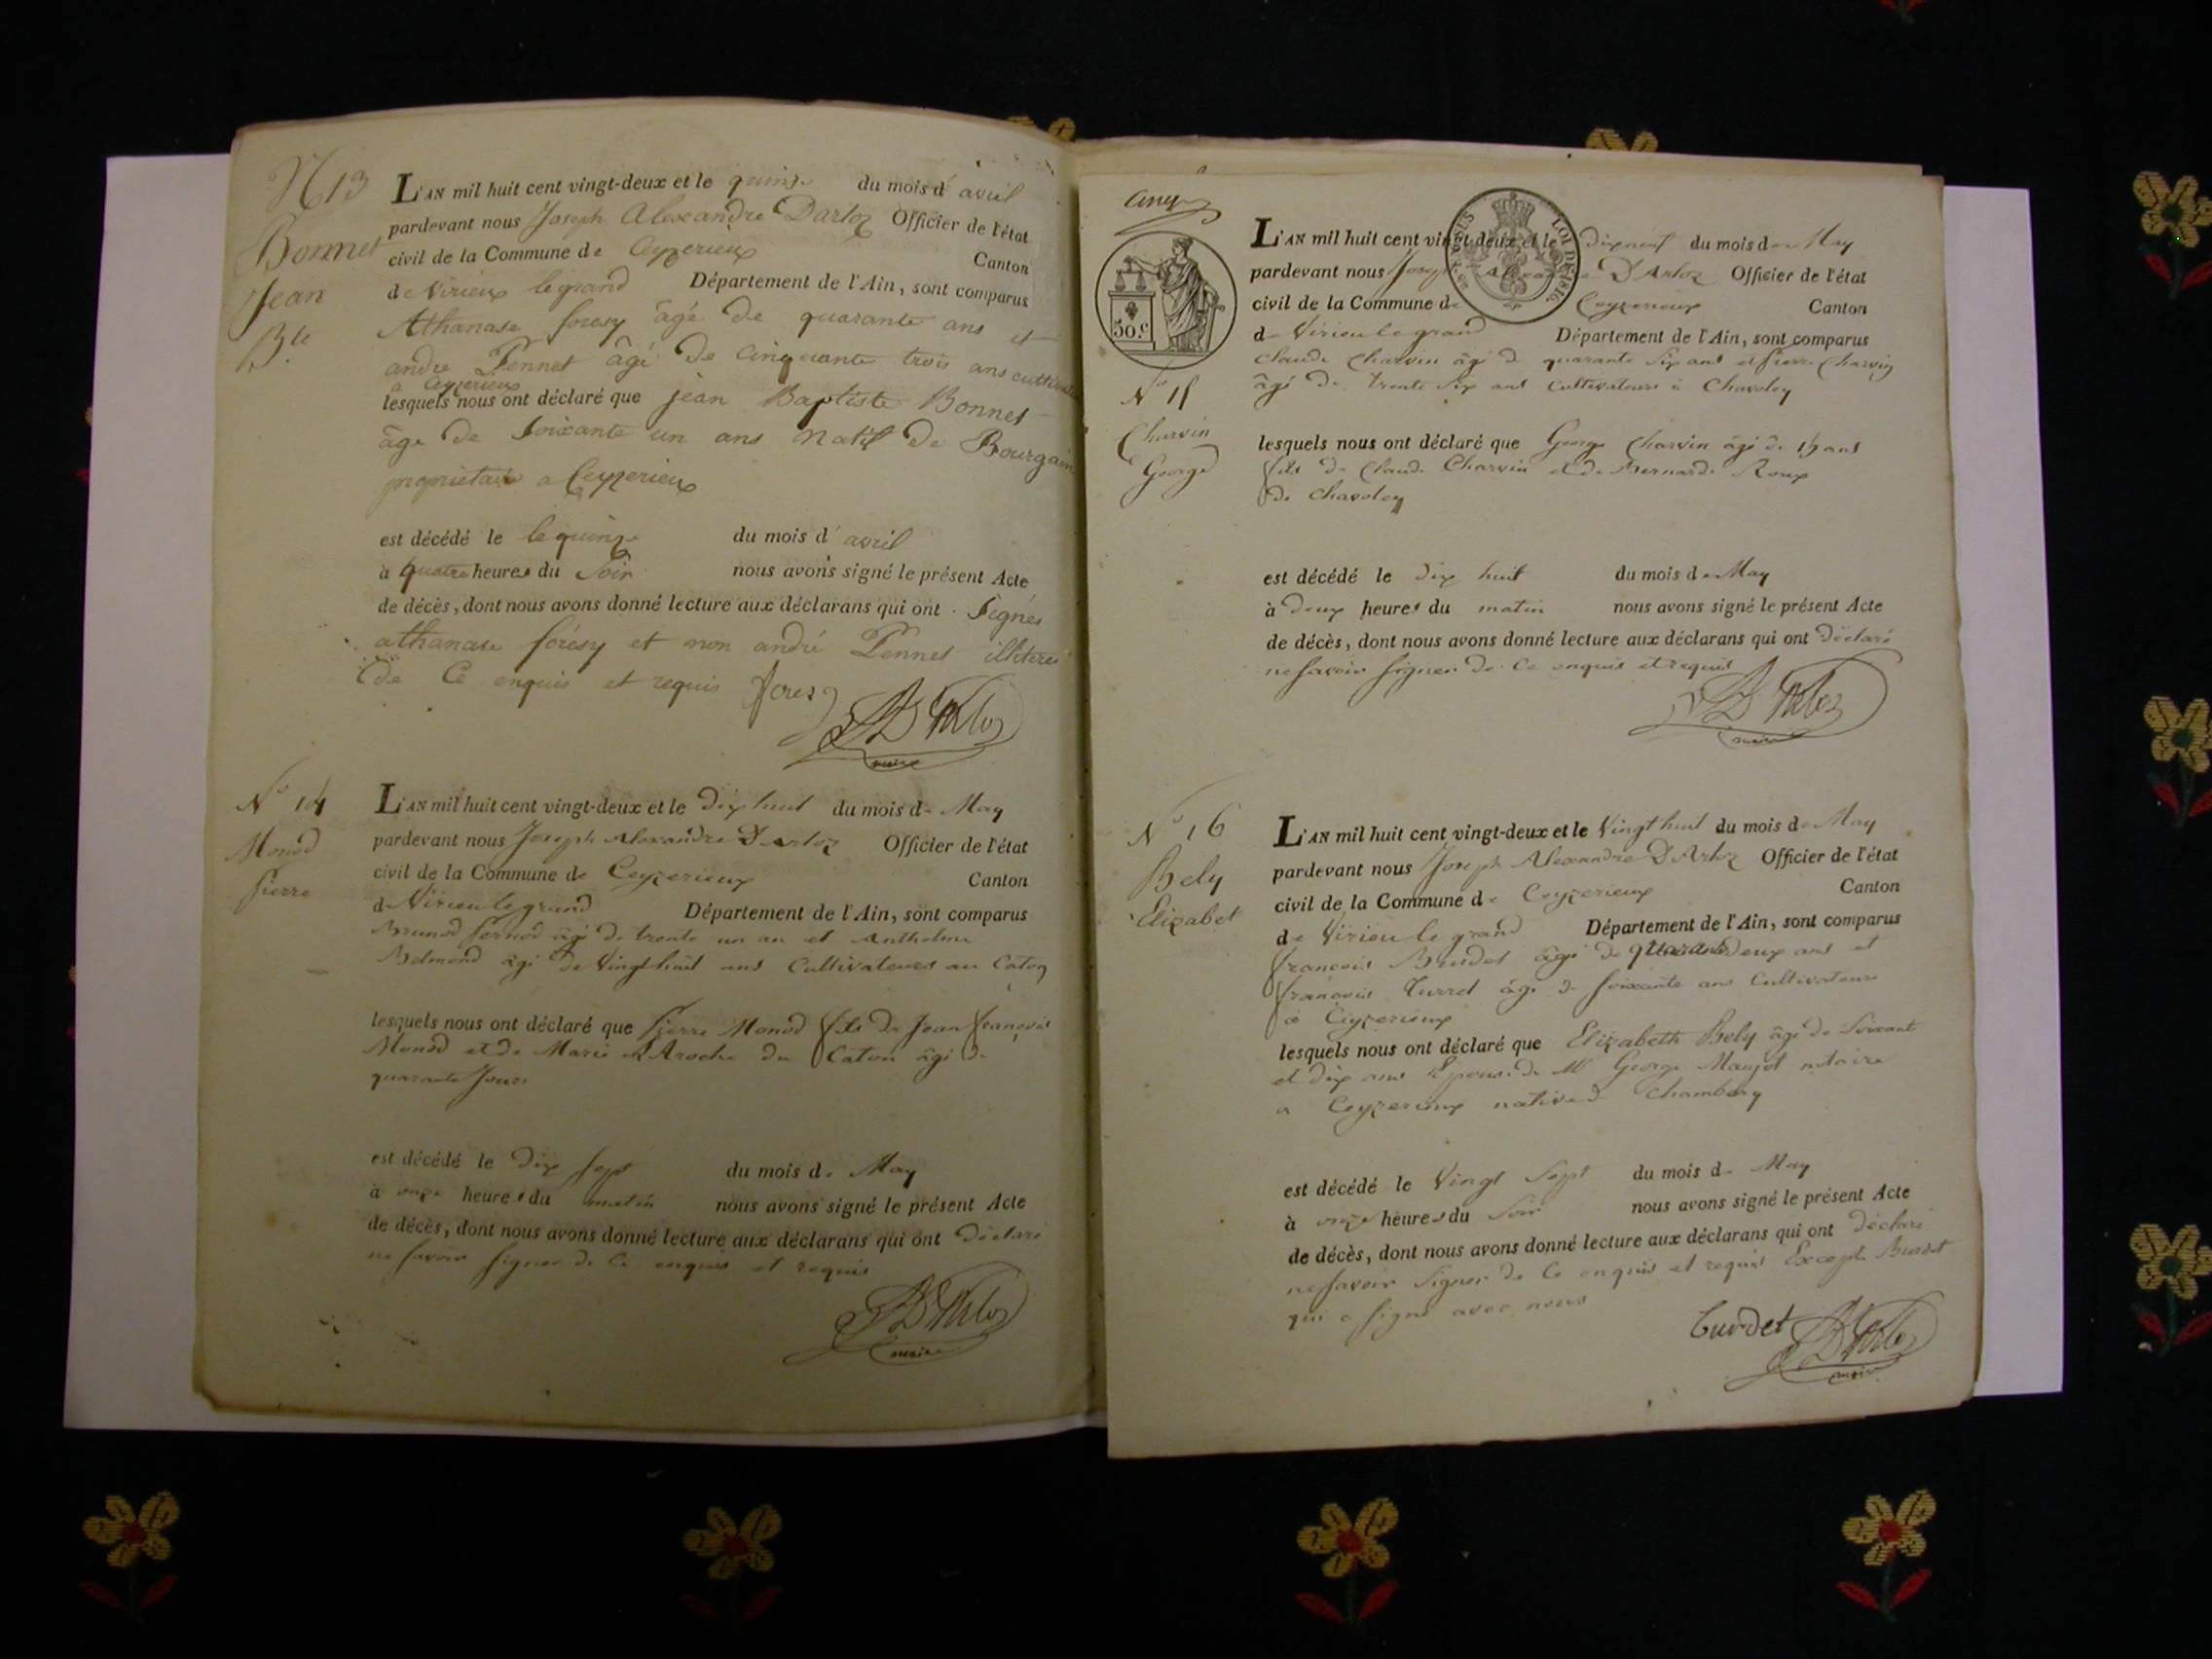 N 13
Bonnet
Jean
Bte
L'AN mil huit cent vingt-deux et le quinze du mois d'avril
pardevant nous Joseph Alexandre Dartoz Officier de l'état
civil de la Commune de Ceyzerieux Canton
de Virieux legrand Département de l'Ain, sont comparus
Athanase foresy âgé de quarante ans et
andre Pennet âgé de cinquante trois ans
a Ceyzerieux
lesquels nous ont déclaré que jean Baptiste Bonnet
âge de soixante un ans natif de Bourgoin
proprietaire a Ceyzerieux
est décédé le le quinze du mois d'avril
à quatre heures du soir nous avons signé le présent Acte
de décès, dont nous avons donné lecture aux déclarans qui ont signés
athanase forésy et non andré Pennet
de ce enquis et requis foresy
maire
N° 14
Monod
pierre
L'AN mil huit cent vingt-deux et le dix huit du mois de May
pardevant nous Joseph Alexandre D'Artoz Officier de l'état
civil de la Commune de Ceyzerieux Canton
de Virieu le grand Département de l'Ain, sont comparus
âgé de trente un an et Anthelme
âgé de vingt huit ans Cultivateurs au Caton
lesquels nous ont déclaré que pierre Monod fils de Jean françois
Monod et de Marie du Caton âgé de
quarante Jours
est décédé le dix sept du mois de May
à onze heures du matin nous avons signé le présent Acte
de décès, dont nous avons donné lecture aux déclarans qui ont déclaré
ne savoir signer de ce enquis et requis
maire
50.c
LOI DE 1816
N° 15
Charvin
George
L'AN mil huit cent vingt-deux et le dix neuf du mois de May
pardevant nous Joseph Alexandre D'Artoz Officier de l'état
civil de la Commune de Ceyzerieux Canton
de Virieu le grand Département de l'Ain, sont comparus
Claude Charvin âgé de quarante six ans et pierre Charvin
âgé de trente six ans Cultivateurs à Chavoley
lesquels nous ont déclaré que George Charvin âgé de ans
fils de Claude Charvin et de Bernarde Roux
de Chavoley
est décédé le dix huit du mois de May
à deux heures du matin nous avons signé le présent Acte
de décès, dont nous avons donné lecture aux déclarans qui ont déclaré
ne savoir signer de ce enquis et requis
maire
N° 16
Bely
Elizabet
L'AN mil huit cent vingt-deux et le vingt huit du mois de May
pardevant nous Joseph Alexandre D'Artoz Officier de l'état
civil de la Commune de Ceyzerieux Canton
de Virieu le grand Département de l'Ain, sont comparus
françois Burdet âgé de quarante deux ans et
françois Turrel âgé de soixante ans Cultivateurs
à Ceyzerieux
lesquels nous ont déclaré que Elizabeth Bely âgé de soixante
et dix ans Epouse de Mr George Maujot notaire
a Ceyzerieux native de Chambery
est décédé le vingt sept du mois de May
à onze heures du soir nous avons signé le présent Acte
de décès, dont nous avons donné lecture aux déclarans qui ont déclaré
ne savoir signer de ce enquis et requis Excepté Burdet
qui a signé avec nous
burdet
maire